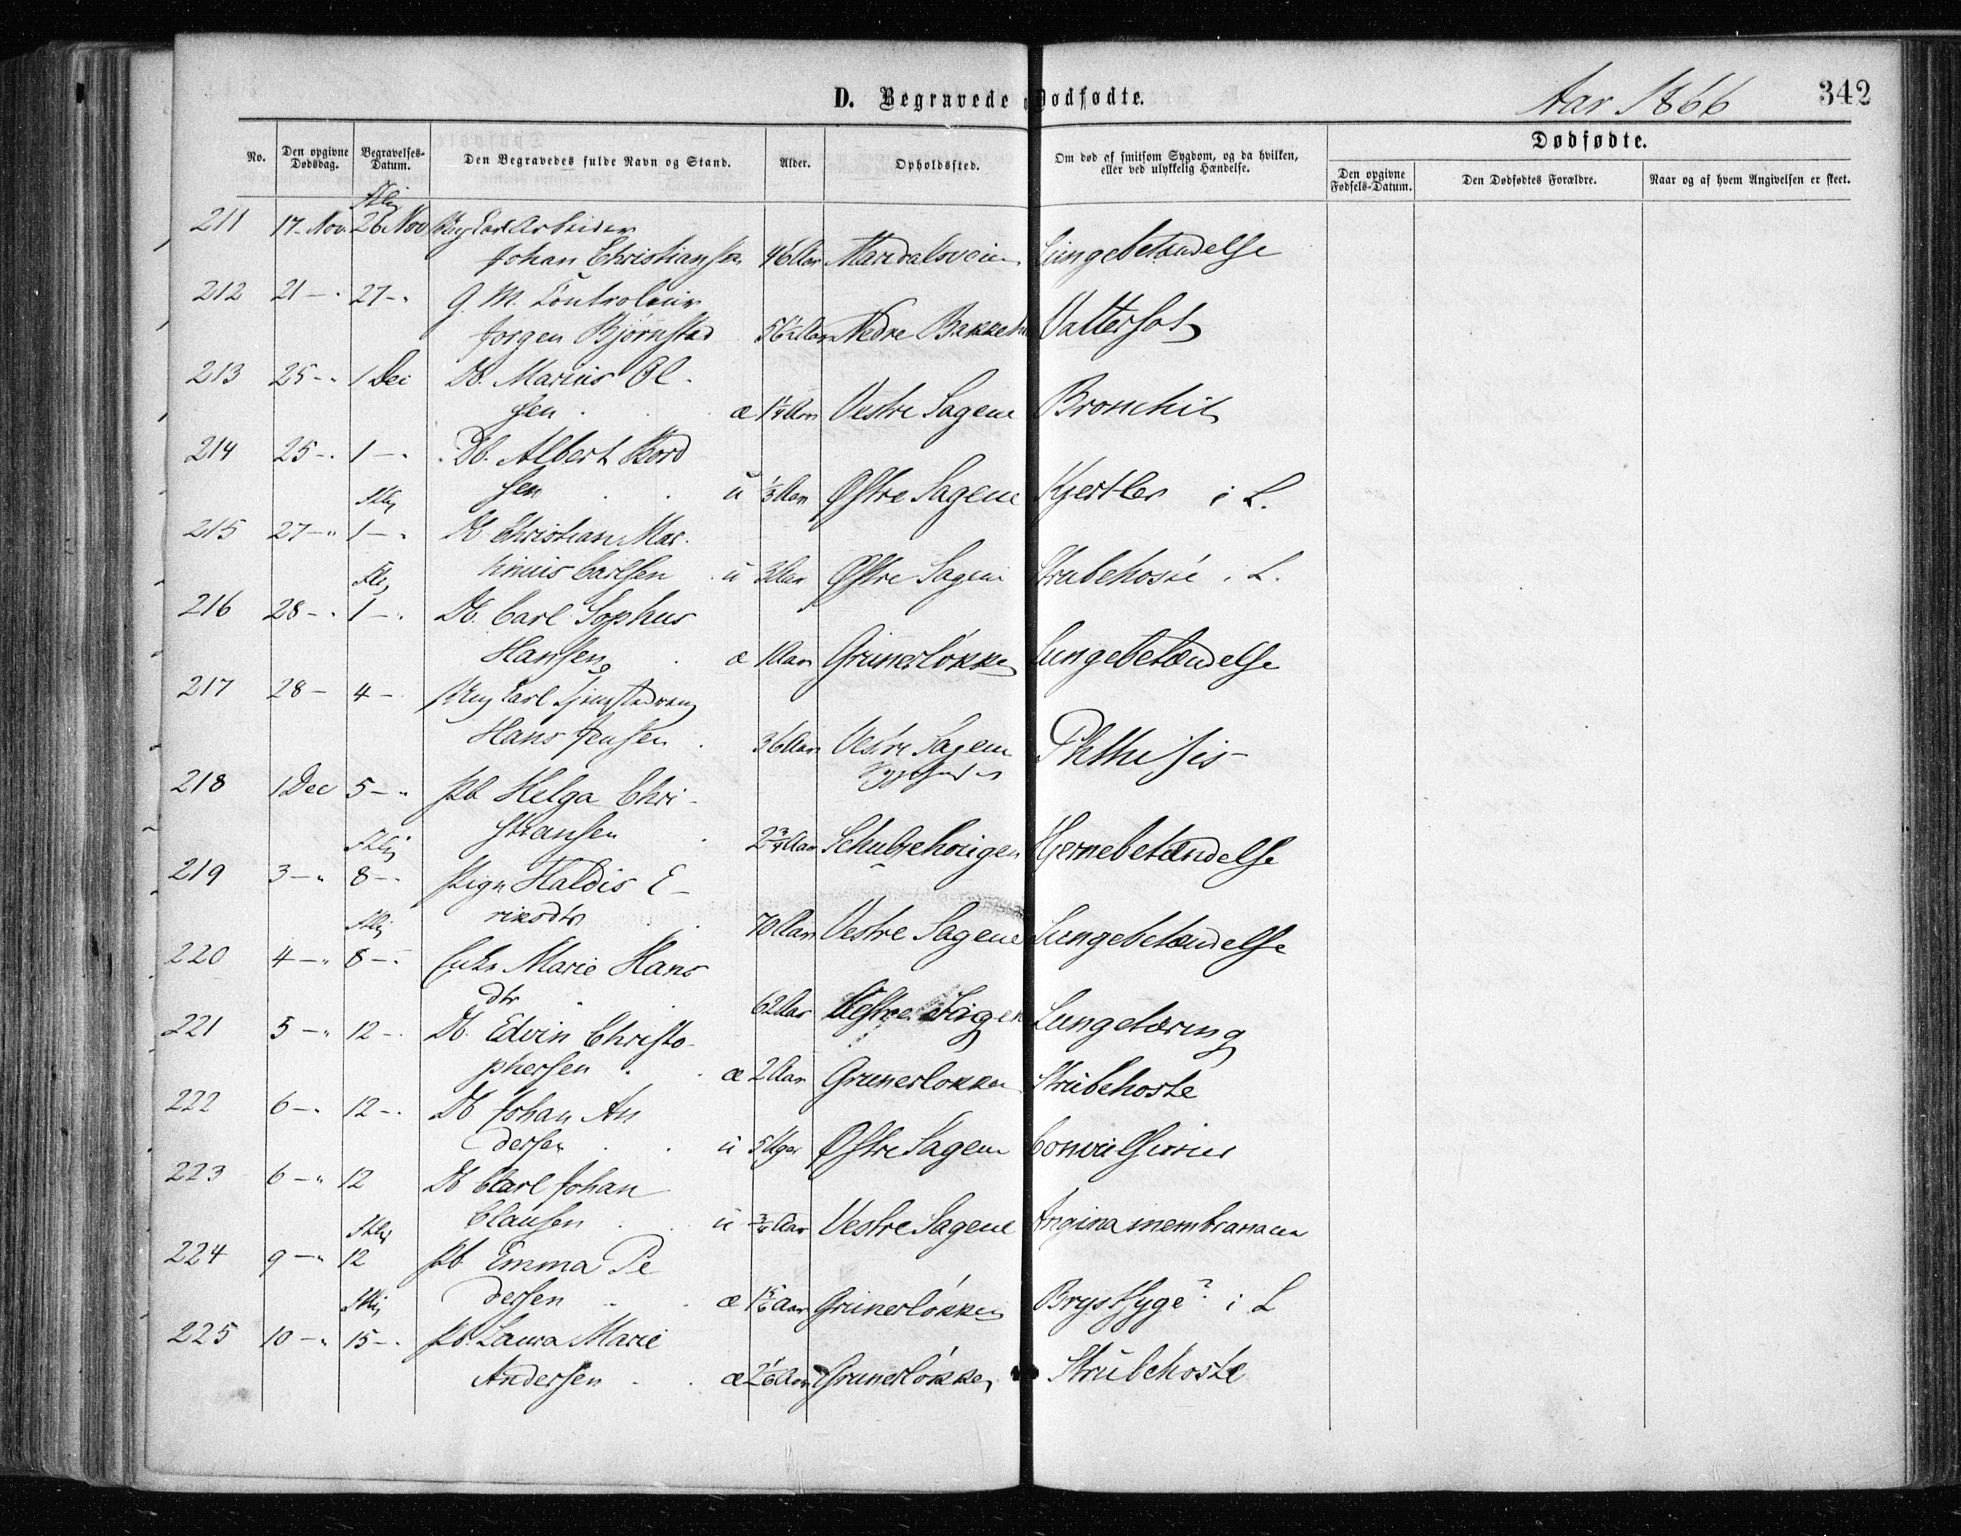 D. Begravede Dødfødte.
Aar 1866
342
No.
Den opgivne Dødsdag.
Begravelses-Datum.
Den Begravedes fulde Navn og Stand.
Alder.
Opholdssted.
Om død af smitsom Sygdom, og da hvilken, eller ved ulykkelig Hændelse.
Dødfødte.
Den opgivne Fødsels-Datum.
Den Dødfødtes Forældre.
Naar og af hvem Angivelsen er skeet.
211 17 Nov 26 Nov Arbeider
Johan Christiansen 46 Aar Maridalsveien Lungebetændelse
212 21 - 27 - G. M. Controleur
Jørgen Bjørnstad Aar Nedre Bakke Vattersot
213 25 - 1 Dec Db. Marius Ol
sen æ 1¼ Aar Vestre Sagene Bronchit
214 25 - 1 - Db. Albert Bord
sen u ⅓ Aar Østre Sagene Kjertler i L.
215 27 - 1 - Db Christian Mar
tinius Carlsen u 3 Aar Østre Sagene Strubehoste i L.
216 28 - 1 - Db. Carl Sophus
Hansen æ 1 Aar Grünerløkken Lungebetændelse
217 28 - 4 -
Hans Jensen 36 Aar Vestre Sagene Phthisis
218 1 Dec 5 - Pb Helga Chri
stiansen 2¾ Aar Schultzehougen Hjernebetændelse
219 3 - 8 - Pige Haldis E
riksdtr 70 Aar Vestre Sagene Lungebetændelse
220 4 - 8 - Enke Marie Hans
dtr 62 Aar Sagen Lungetæring
221 5 - 12 - Db. Edvin Christo
phersen æ 2 Aar Grunerløkken Strubehoste
222 6 - 12 - Db Johan An
dersen u 5 Uger Østre Sagene Convulsioner
223 6 - 12 Db Carl Johan
Clausen u ¾ Aar Vestre Sagene Angina membranacea
224 9 - 12 Pb. Emma Pe
dersen æ Aar Grünerløkken Brystsyge? i L
225 10 - 15 - Pb. Laura Marie
Andersen æ 2⅙ Aar Grunerløkken Strubehoste